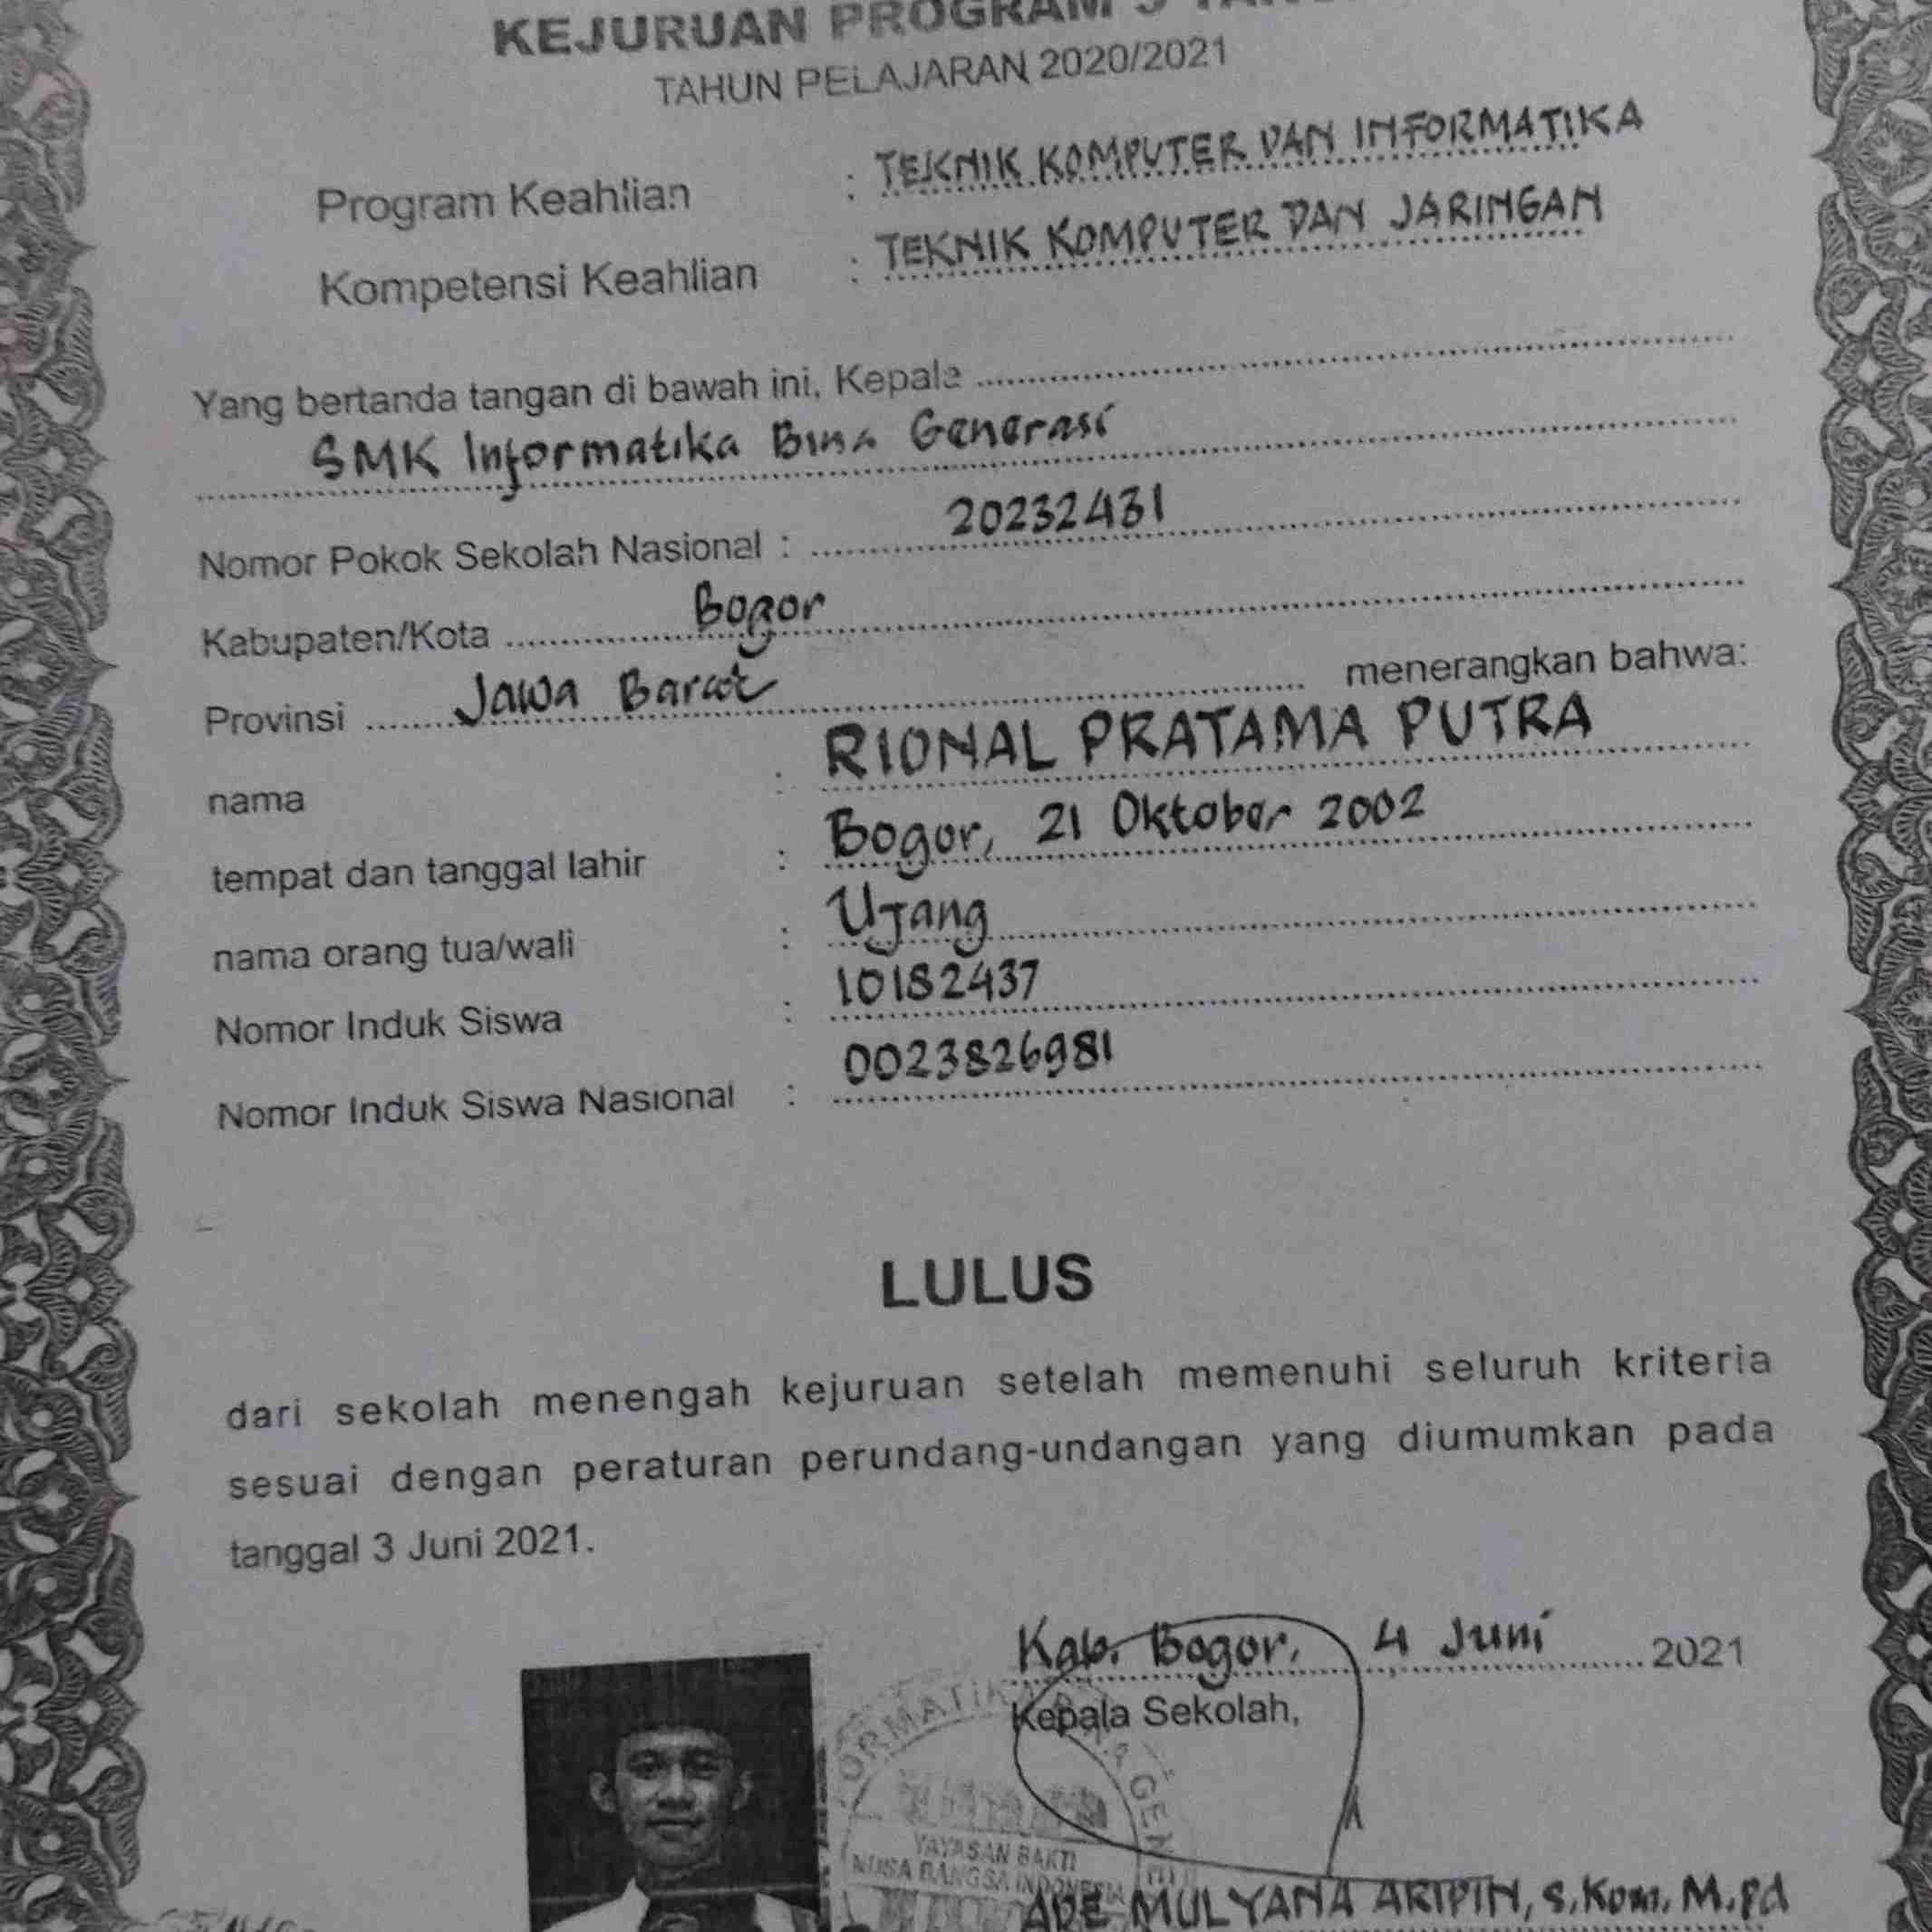 KEJURUAN PROGRAM 3
TAHUN PELAJARAN 2020/2021
Program Keahlian : TEKNIK KOMPUTER DAN INFORMATIKA
Kompetensi Keahlian : TEKNIK KOMPUTER DAN JARINGAN
Yang bertanda tangan di bawah ini, Kepala
SMK Informatika Bina Generasi
Nomor Pokok Sekolah Nasional : 20232431
Kabupaten/Kota Bogor
Provinsi Jawa Barat menerangkan bahwa:
nama : RIONAL PRATAMA PUTRA
tempat dan tanggal lahir : Bogor, 21 Oktober 2002
nama orang tua/wali : Ujang
Nomor Induk Siswa : 10182437
Nomor Induk Siswa Nasional : 0023826981
LULUS
dari sekolah menengah kejuruan setelah memenuhi seluruh kriteria
sesuai dengan peraturan perundang-undangan yang diumumkan pada
tanggal 3 Juni 2021.
Kab. Bogor, 4 Juni 2021
Kepala Sekolah,
YAYASAN BAKTI
NUSA BANGSA INDONESIA
ADE MULYANA ARIPIN, S.Kom. M.Pd